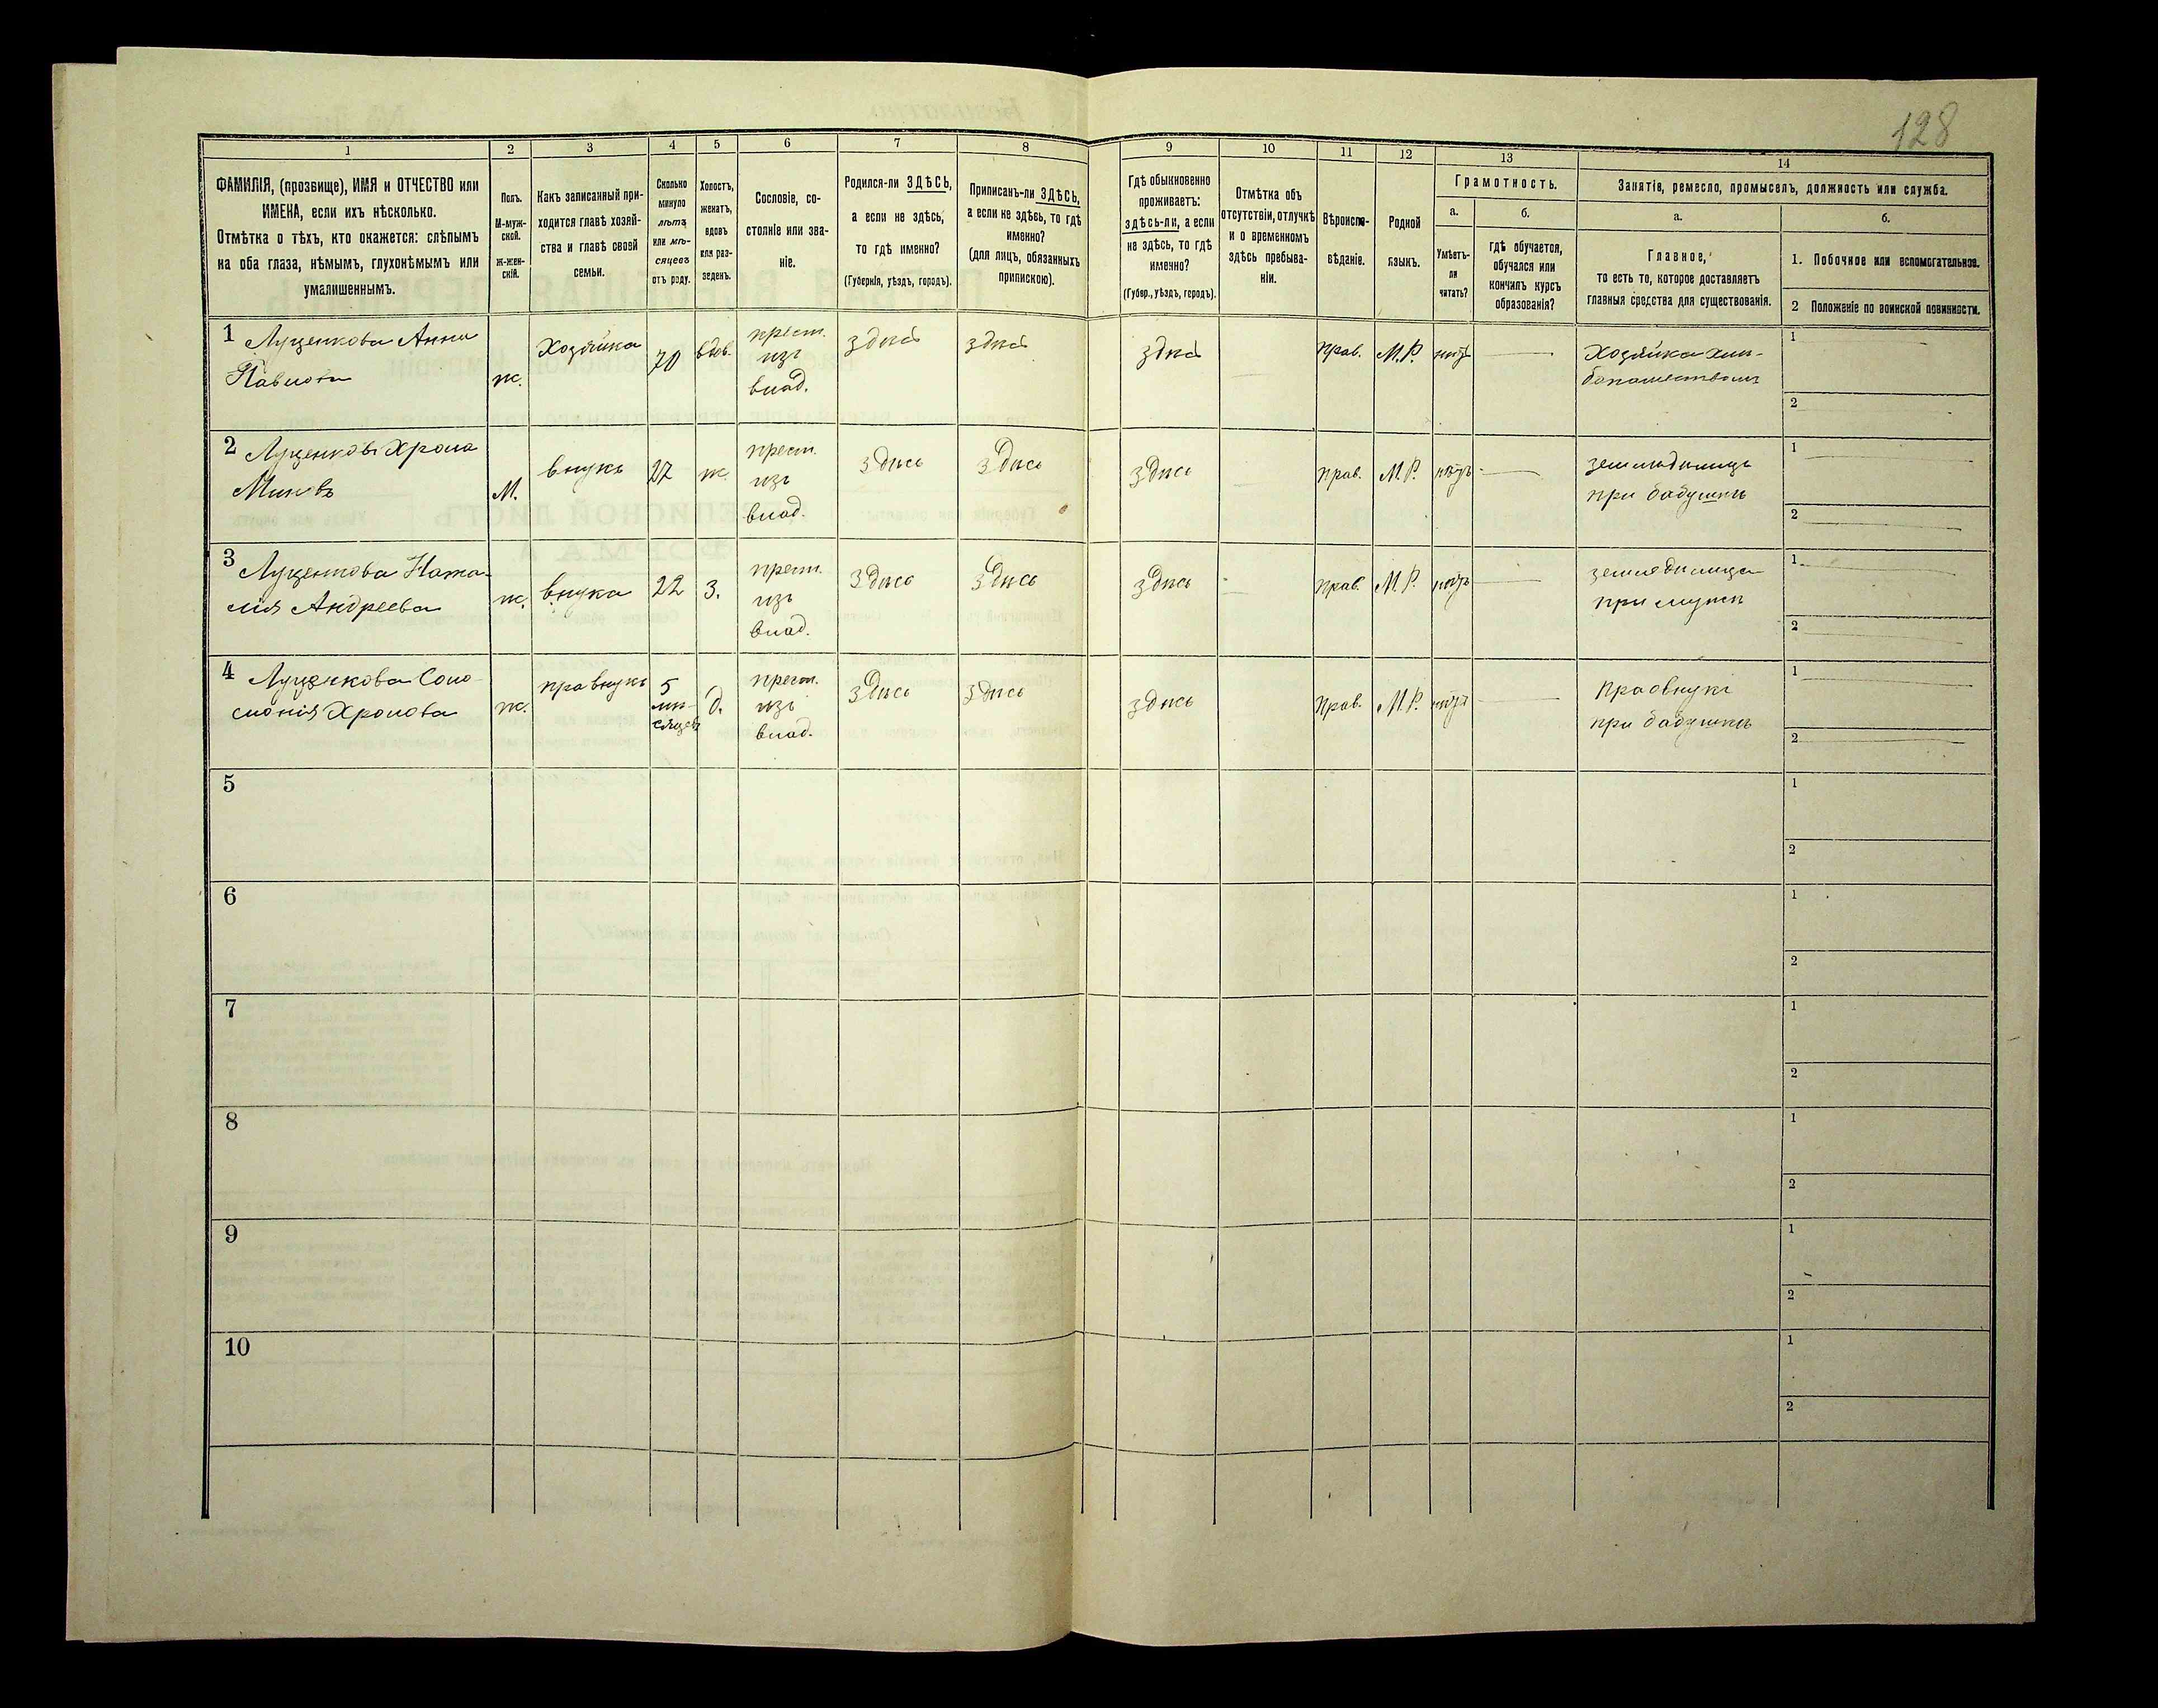 128
1
2
3
4
5
6
7
8
9
10
11
12
13
14
ФАМИЛІЯ, (прозвище), ИМЯ и ОТЧЕСТВО или
ИМЕНА, если ихъ нѣсколько.
Отмѣтка о тѣхъ, кто окажется: слѣпымъ
на оба глаза, нѣмымъ, глухонѣмымъ или
умалишеннымъ.
Полъ.
М-муж-
ской.
Ж-жен-
скій.
Какъ записанный при-
ходится главѣ хозяй-
ства и главѣ своей
семьи.
Сколько
минуло
лѣтъ
или мѣ-
сяцевъ
отъ роду.
Холостъ,
женатъ,
вдовъ
или раз-
веденъ.
Сословіе, со-
стояніе или зва-
ніе.
Родился-ли ЗДѢСЬ,
а если не здѣсь,
то гдѣ именно?
(Губернія, уѣздъ, городъ).
Приписанъ-ли ЗДѢСЬ,
а если не здѣсь, то гдѣ
именно?
(для лицъ, обязанныхъ
припискою).
Гдѣ обыкновенно
проживаетъ:
здѣсь-ли, а если
не здѣсь, то гдѣ
именно?
(Губер., уѣздъ, городъ).
Отмѣтка объ
отсутствіи, отлучкѣ
и о временномъ
здѣсь пребыва-
ніи.
Вѣроиспо-
вѣданіе.
Родной
языкъ.
Грамотность.
а.
б.
Умѣетъ-
ли
читать?
гдѣ обучается,
обучался или
кончилъ курсъ
образованія?
Занятіе, ремесло, промыселъ, должность или служба.
а.
б.
Главное,
то есть то, которое доставляетъ
главныя средства для существованія.
1. Побочное или вспомогательное.
2 Положеніе по воинской повинности.
1 Луценкова Анна
Павлова
ж.
Хозяйка
70
вдов.
крест.
изъ
влад.
здѣсь
здѣсь
здѣсь
прав.
М.Р.
нѣтъ
Хозяйка хлѣ-
бопашествомъ
1
2
2 Луценковъ Хрома
М.
внукъ
27
ж.
крест.
изъ
влад.
здѣсь
здѣсь
здѣсь
прав.
М.Р.
нѣтъ
земледѣлецъ
при бабушкѣ
1
2
3 Луценкова Ната-
лія Андреева
ж.
внука
22
З.
крест.
изъ
влад.
здѣсь
здѣсь
здѣсь
прав.
М.Р.
нѣтъ
земледѣлица
при мужѣ
1
2
4 Луценкова Соло-
монія Хромова
ж.
правнукъ
5
мѣ-
сяцевъ
д.
крест.
изъ
влад.
здѣсь
здѣсь
здѣсь
прав.
М.Р.
нѣтъ
при бабушкѣ
1
2
5
1
2
6
1
2
7
1
2
8
1
2
9
1
2
10
1
2